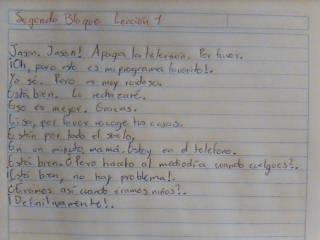 Segundo Bloque Lección 1
Jason. Jason! Apaga la televisón. Por favor.
¡Oh, pero este es mi programa favorito!.
Yo sé. Pero es muy ruidoso.
Está bien. Lo rechazaré.
Eso es mejor. Gracias.
Lisa, por favor recoge tus cosas.
Están por todo el suelo.
En un minuto, mamá. Estoy en el teléfono.
Está bien. ¿Pero hacerlo al mediodía cuando cuelgues?.
¡Está bien, no hay problema!.
¿Éramos así cuando éramos niños?.
¡Definitivamente!.